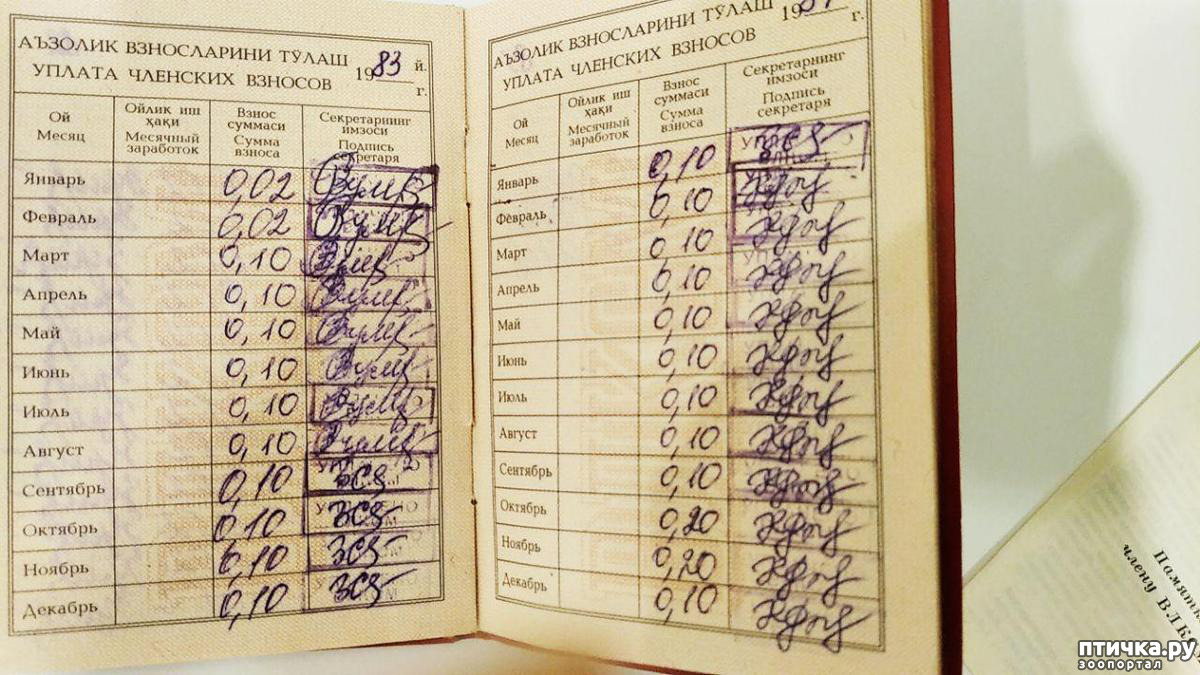 АЪЗОЛИК ВЗНОСЛАРИНИ ТЎЛАШ
УПЛАТА ЧЛЕНСКИХ ВЗНОСОВ
1983 й.
г.
Ой
Месяц
Ойлик иш
ҳақи
Месячный
заработок
Взнос
суммаси
Сумма
взноса
Секретарнинг
имзоси
Подпись
секретаря
Январь 0,02
Февраль 0,02
Март 0,10
Апрель 0,10
Май 0,10
Июнь 0,10
Июль 0,10
Август 0,10
Сентябрь 0,10
Октябрь 0,10
Ноябрь 0,10
Декабрь 0,10
АЪЗОЛИК ВЗНОСЛАРИНИ ТЎЛАШ
УПЛАТА ЧЛЕНСКИХ ВЗНОСОВ
19
г.
Ой
Месяц
Ойлик иш
ҳақи
Месячный
заработок
Взнос
суммаси
Сумма
взноса
Секретарнинг
имзоси
Подпись
секретаря
Январь 0,10
Февраль 0,10
Март 0,10
Апрель 0,10
Май 0,10
Июнь 0,10
Июль 0,10
Август 0,10
Сентябрь 0,10
Октябрь 0,20
Ноябрь 0,20
Декабрь 0,10
члену
птичка.ру
зоопортал